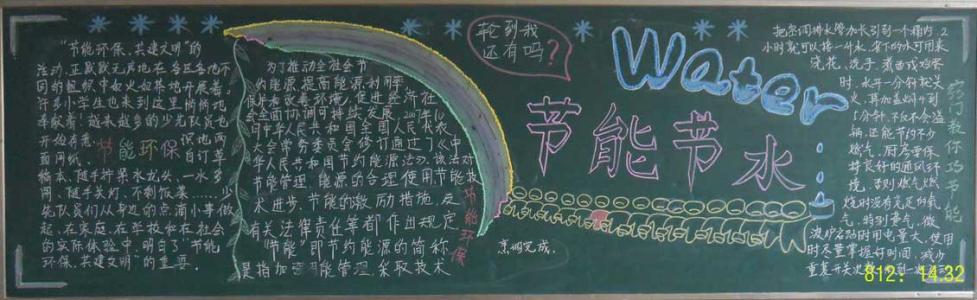 "节能环保、共建文明"的
活动,正默默无声地在各区各地不
同的组织中如火如荼地开展着。
许多小学组也来到这里悄悄地
奉献着!越来越多的少先队员也
开始有意 识地两
面用纸、 自订草
稿本、随手拧紧水龙头、一水多
用、随手关灯、不剩饭菜……少
先队员们从身边的点滴小事做
起,在家庭、在学校和在社会
的实际体验中,明白了"节能
环保、共建文明"的重要。
节能环保
为了推动全社会节
约能源,提高能源利用率
保护和改善环境,促进经济社
会全面协调可持续发展,2007年10
月中华人民共和国全国人民代表
大会常务委员会修订通过了《中
华人民共和国节约能源法》。该法对
节能管理、能源的合理使用节能技
术进步、节能的激励措施、及
有关法律责任等都作出规定
"节能"即节约能源的简称
是指加强用能管理,采取技术
节能环保
轮到我
还有吗?
Water
节能节水
烹调完成。
把空调排水管加长引到一个桶内,2
小时就可以接一升水,省下的水可用来
浇花、洗手,煮面或鸡蛋
时,水开一分钟就关
火,再加盖焖4到
5分钟,不仅不会溢
锅,还能节约不少
燃气。厨房要保
持良好的通风环
境,否则燃气燃
烧时没有充足的氧
气,特别费气。微
波炉启动时用电量大,使用
时尽量掌握好时间,减少
重复开关次数,做到一
窍门教你巧节能
812: 14:32